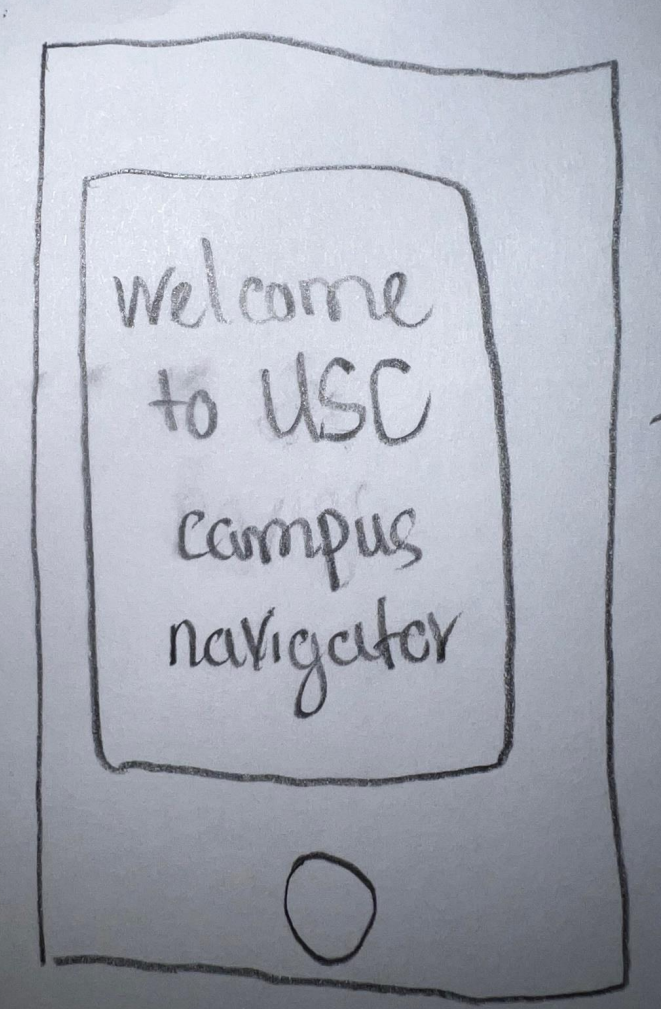 Welcome
to USC
campus
navigator